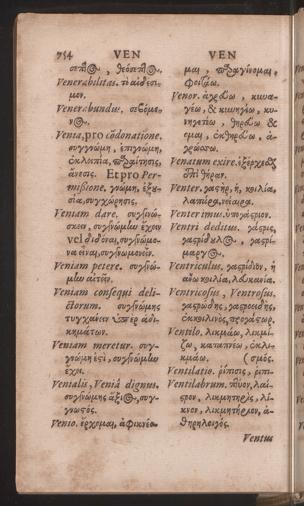 754 VEN VEN
Venerabilitas. τὸ αἰδέσι-
μον.
Venerabundus. σεβόμε-
νος.
Venia, pro cōdonatione.
συγγνώμη, ἐπιγνώμη,
ἄνεσις. Et pro Per-
missione. γνώμη, ἐξου-
σία, συγχώρησις.
Veniam dare. συγγινώ-
σκειν, συγγνώμην ἔχειν
vel διδόναι, συγγνώμο-
να εἶναι,
Veniam petere. συγγνώ-
μην αἰτεῖν.
Veniam consequi deli-
ctorum. συγγνώμης
τυγχάνειν ὑπὲρ ἁδι-
κημάτων.
Veniam meretur. συγ-
γνώμη ἐστὶ, συγγνώμην
ἔχει.
Venialis, Veniâ dignus.
συγγνώμης ἄξιος, συγ-
γνωστός.
Venio. ἔρχομαι, ἀφικνέο-
μαι, παραγίνομαι,
Venor. ἀγρεύω, κυνα-
γέω, & κυνηγέω, κυ-
νηγετέω, θηρεύω, &
ομαι, ἐκθηρεύω, ἀ-
Venatum exire. ἐξέρχεσθαι
ἐπὶ θήραν.
Venter. γαστὴρ, ἡ, κοιλία,
λαπάρα, νείαιρα.
Venter imus. ὑπογάστριον.
Ventri deditus. γάστρις,
γαστρίδουλος, γαστρί-
μαργος.
Ventriculus. γαστρίδιον, ἡ
ἄνω κοιλία,
Ventricosus, Ventrosus.
γαστρώδης,
προγάστωρ.
Ventilo. λικμάω, λικμί-
ζω, καταπνέω, ἐκλι-
κμάω. (σμός.
Ventilatio. ῥίπισις, ῥιπι-
Ventilabrum. πτύον,
λικμητηρὶς, λί-
κνον, λικμητήριον, ἀ-
θηρηλοιγός.
Ventus